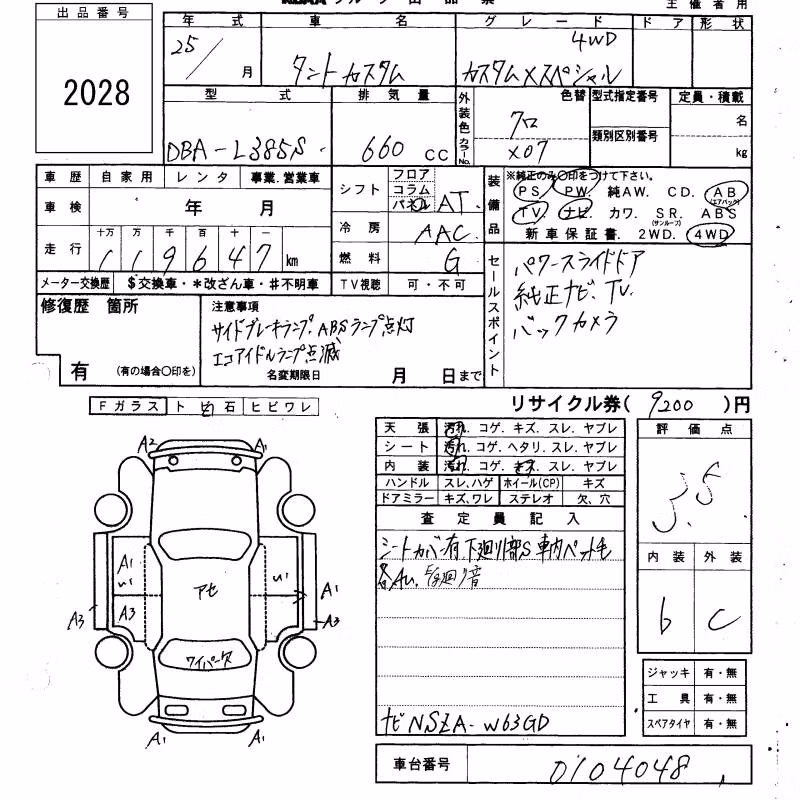 出品番号
2028
主催者用
年 式 車 名 グレード ドア 形状
25/ 月 タントカスタム 4WD カスタムXスペシャル
型 式 排気量 外装色 カラーNo. 色替 型式指定番号 定員・積載
DBA-L385S 660 cc クロ X07 類別区別番号 名 kg
車歴 自家用 レンタ 事業.営業車
車検 年 月
走行 十万 万 千 百 十 一
119647 km
メーター交換歴 $交換車・*改ざん車・#不明車
シフト フロア コラム パネル AT
冷房 AAC
燃料 G
TV視聴 可・不可
装備品 ※純正のみ〇印をつけて下さい。
PS PW 純AW. CD. AB (エアバッグ)
TV ナビ カワ. SR. (サンルーフ) ABS
新車保証書. 2WD. 4WD
セールスポイント
パワースライドドア
純正ナビ、TV.
バックカメラ
修復歴 箇所
有 (有の場合〇印を)
注意事項
サイドブレーキランプ、ABSランプ点灯
エコアイドルランプ点滅
名変期限日 月 日まで
リサイクル券( 9200 )円
Fガラス トビ石 ヒビワレ
A2 A1
A1 A3 アセ A1
A3 A3
ワイパーX
A1 A1
天張 汚れ. コゲ. キズ. スレ. ヤブレ
シート 汚れ. コゲ. ヘタリ. スレ. ヤブレ
内装 汚れ. コゲ. キズ. スレ. ヤブレ
ハンドル スレ、ハゲ ホイール(CP) キズ
ドアミラー キズ、ワレ ステレオ 欠、穴
査定員記入
シートカバー有 下廻り部S 車内ペット毛
ナビNSZA-W63GD
評価点
3.5
内装 外装
b C
ジャッキ 有・無
工具 有・無
スペアタイヤ 有・無
車台番号 0104048